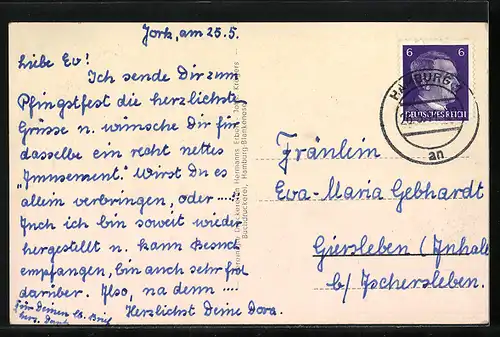 Jork, am 25.5.
Liebe Ev!
Ich sende Dir zum
Pfingstfest die herzlichste
Grüsse u. wünsche Dir für
dasselbe ein recht nettes
„Amusement." Wirst Du es
allein verbringen, oder .....
Auch ich bin soweit wieder
hergestellt u. kann Besuch
empfangen, bin auch sehr froh
darüber. Also, na denn ....
Herzlichst Deine Dora.
Für Deinen lb. Brief
herz. Dank
Hermanns Erben
Buchdruckerei, Hamburg-Blankenese
6 6
DEUTSCHES REICH
HAMBURG
an
Fräulein
Eva-Maria Gebhardt
Giersleben (Anhalt
b/ Aschersleben.